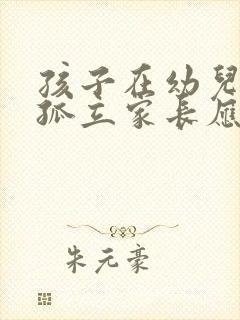 孩子在幼兒
孤立家長應
朱元豪